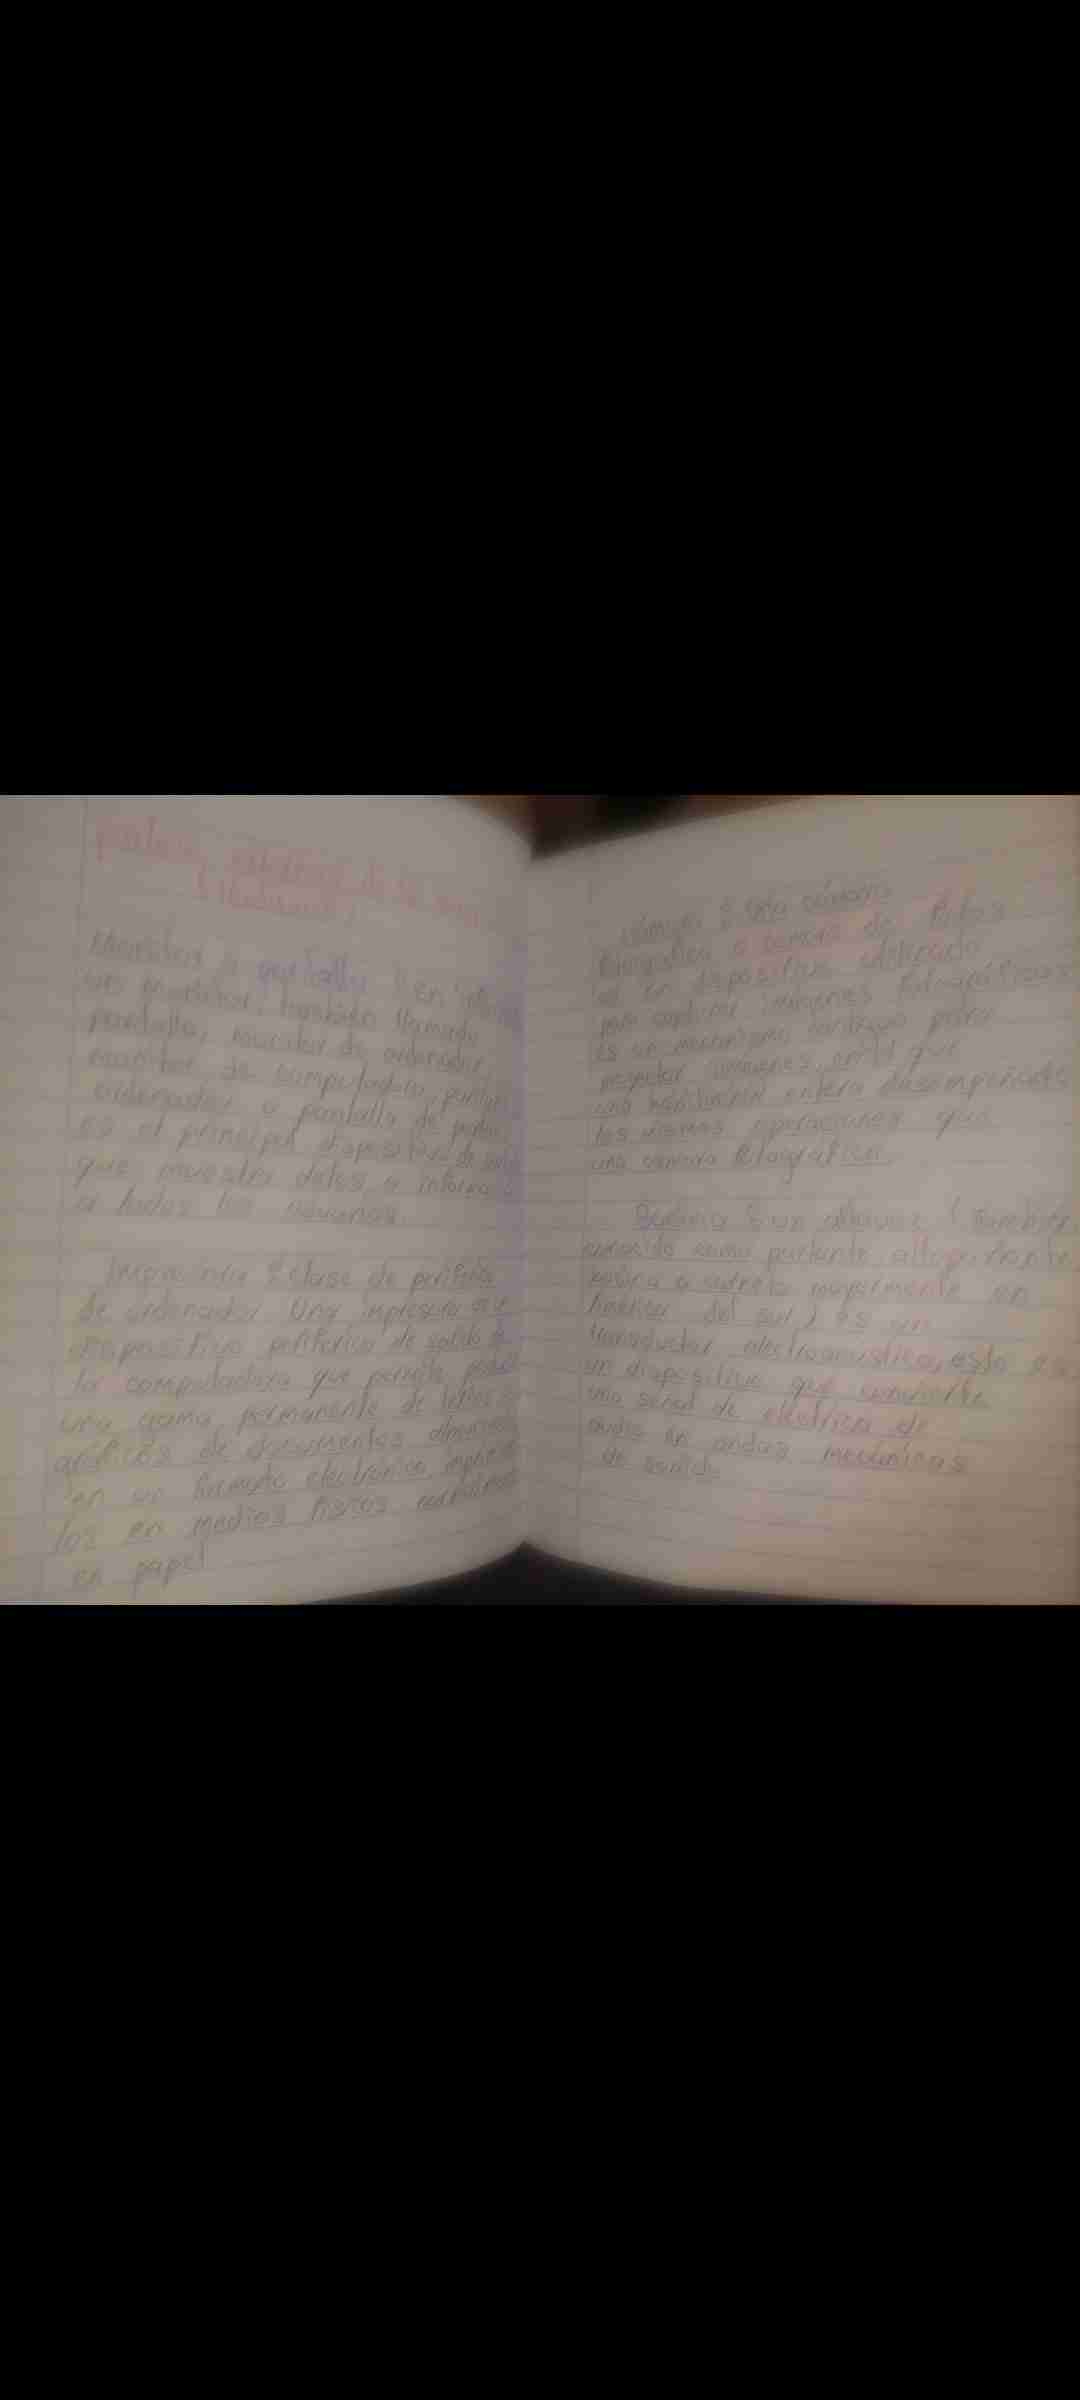 partes externas de la
(Hardware)
Monitor o pantalla : en
un monitor, también llamado
pantalla, monitor de ordenador,
monitor de computadora,
ordenador o pantalla de
es el principal dispositivo de
que muestra datos o
a todos los usuarios.
Impresora : clase de
de ordenador. Una impresora
dispositivo periférico de salida
la computadora que permite
una gama permanente de
gráficos de documentos
en un formato electrónico
los en medios físicos
en papel
cámara : Una cámara
fotográfica o cámara de fotos
es un dispositivo utilizado
para capturar imágenes fotográficas
es un mecanismo antiguo para
proyectar imágenes, en el que
una habitación entera desempeñaba
las mismas operaciones que
una cámara fotográfica.
Bocina : un altavoz (también
conocido como parlante, altoparlante,
bocina o mayormente en
América del sur) es un
transductor electroacústico, esto es,
un dispositivo que convierte
una señal de eléctrica de
audio en ondas mecánicas
de sonido